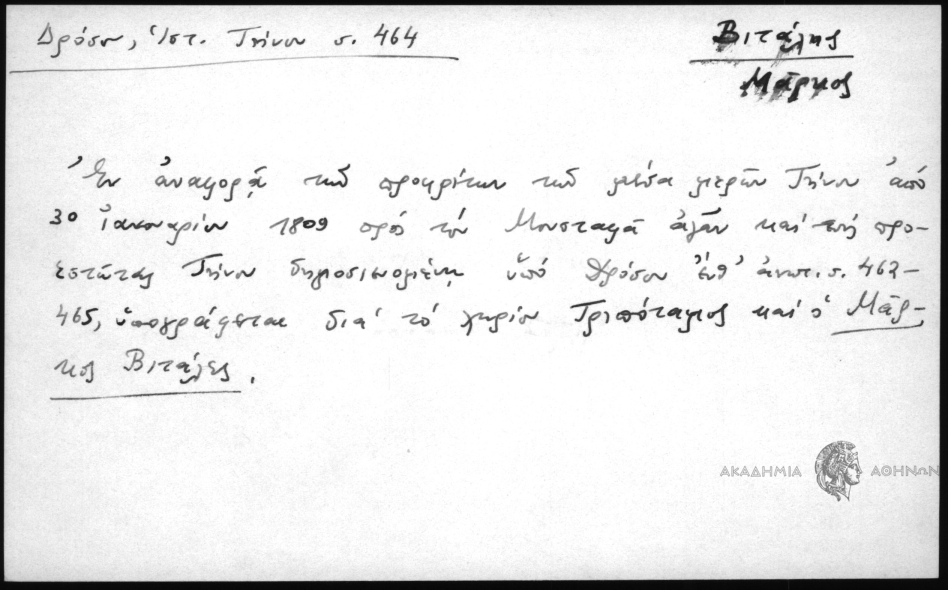 Δρόσου, Ἱστ. Τήνου σ. 464
Βιτάλης
Μᾶρκος
Ἐν ἀναφορᾷ τῶν προκρίτων τῶν μέσα μερῶν Τήνου ἀπό
30 Ἰανουαρίου 1809 πρός τόν Μουσταφᾶ ἀγᾶν καί τούς προ-
εστῶτας Τήνου δημοσιευομένῃ ὑπό Δρόσου ἔνθ' ἀνωτ. σ. 463-
465, ὑπογράφεται διά τό χωρίον Τριπόταμος καί ὁ Μᾶρ-
κος Βιτάλες.
ΑΚΑΔΗΜΙΑ ΑΘΗΝΩΝ